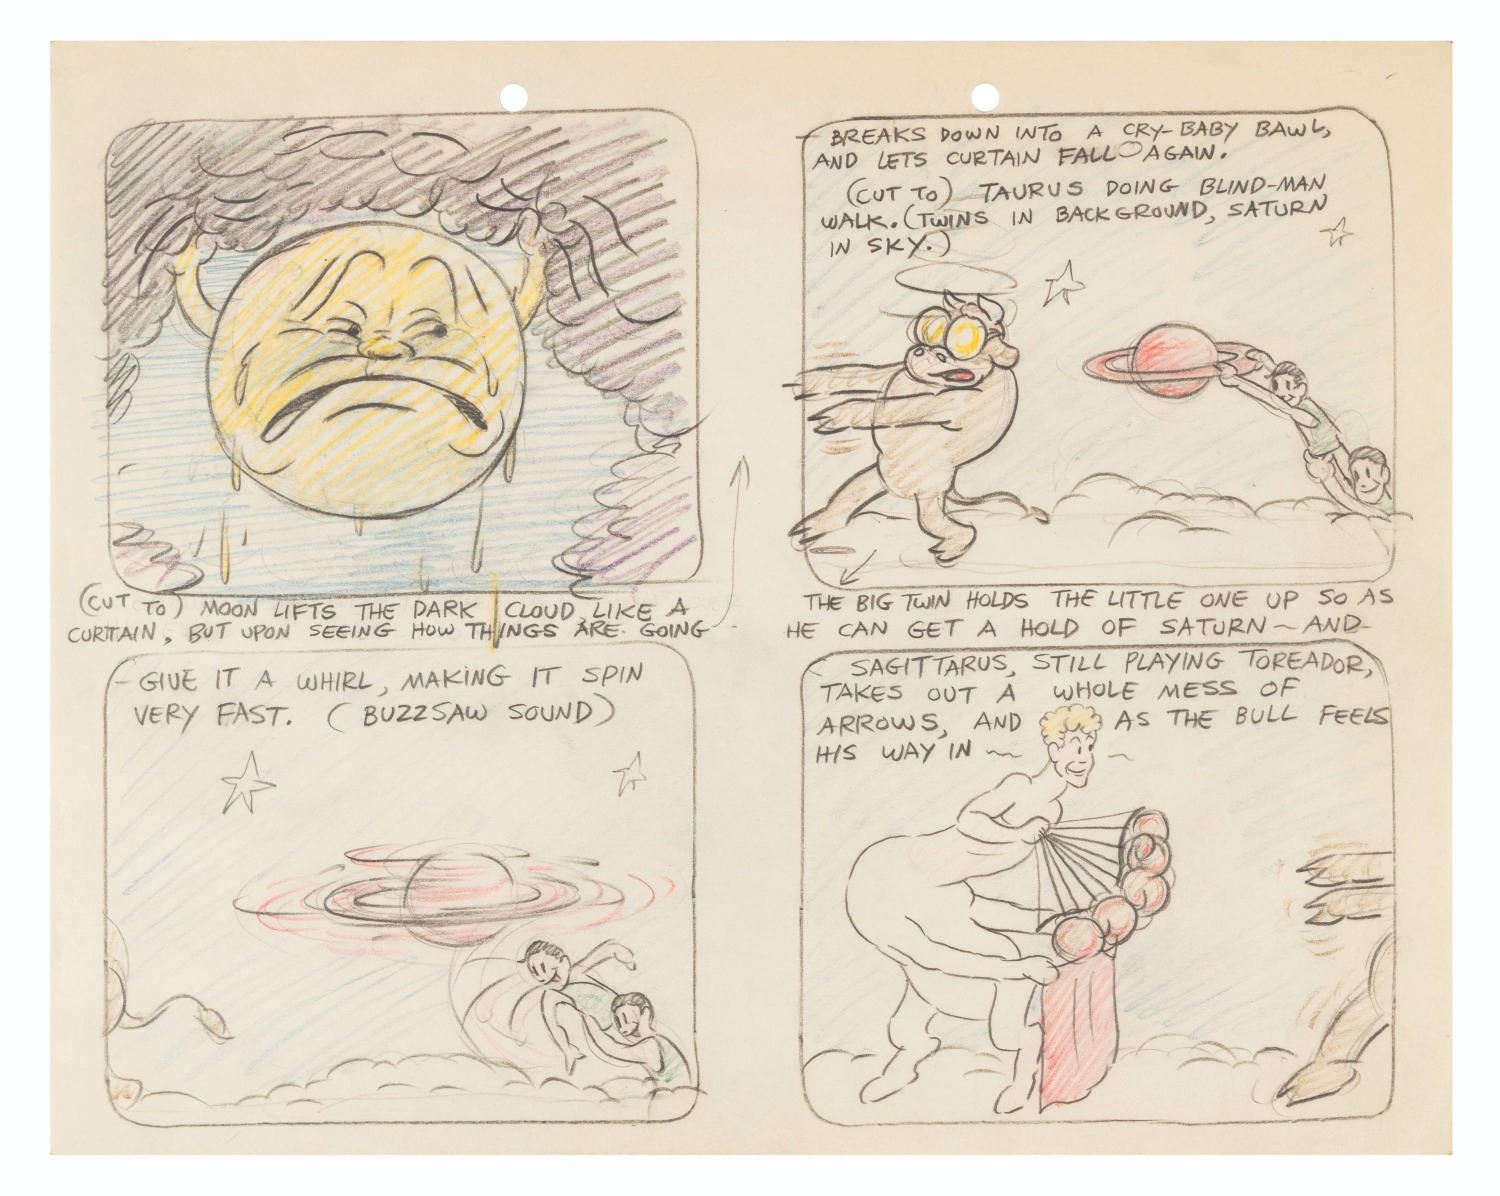 (CUT TO) MOON LIFTS THE DARK CLOUD, LIKE A
CURTAIN, BUT UPON SEEING HOW THINGS ARE GOING
- BREAKS DOWN INTO A CRY-BABY BAWL,
AND LETS CURTAIN FALL AGAIN.
(CUT TO) TAURUS DOING BLIND-MAN
WALK. (TWINS IN BACKGROUND, SATURN
IN SKY.)
THE BIG TWIN HOLDS THE LITTLE ONE UP SO AS
HE CAN GET A HOLD OF SATURN ~ AND-
- GIVE IT A WHIRL, MAKING IT SPIN
VERY FAST. (BUZZSAW SOUND)
SAGITTARUS, STILL PLAYING TOREADOR,
TAKES OUT A WHOLE MESS OF
ARROWS, AND AS THE BULL FEELS
HIS WAY IN ~ ~